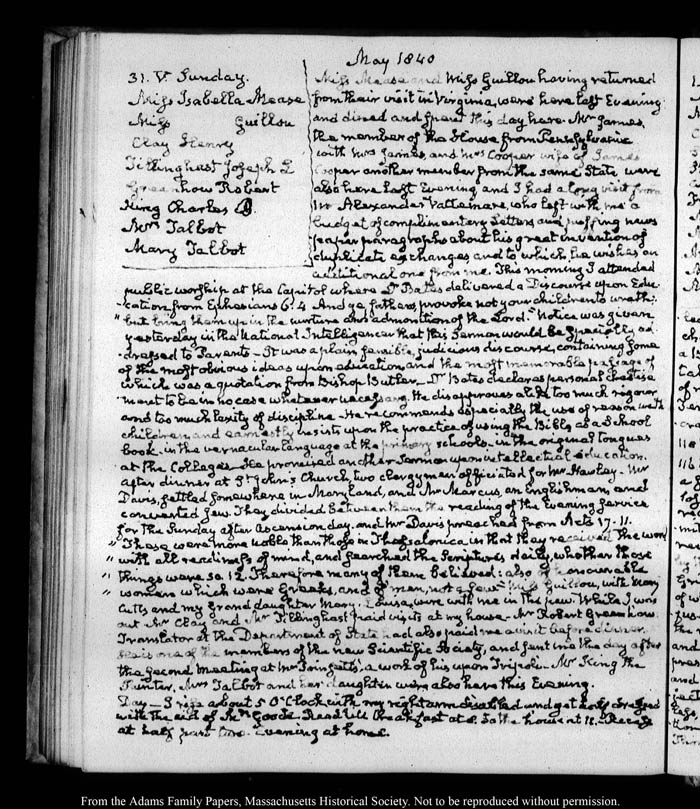 May 1840
31. V. Sunday.
Miss Isabella Mease
Miss Guillou
Clay Henry
Tillinghast Joseph L
Greenhow Robert
King Charles
Mrs Talbot
Mary Talbot
Miss Mease and Miss Guillou having returned
from their visit in Virginia, were here last Evening
and dined and spent this day here. Mr James,
the member of the House from Pennsylvania
with Mrs James, and Mrs Cooper wife of James
Cooper another member from the same State were
also here last Evening and I had a long visit from
Mr Alexander Vattemare, who left with me a
budget of complimentary Letters and puffing news
paper paragraphs about his great invention of
duplicate exchanges, and to which he wishes an
additional one from me. This morning I attended
public worship at the Capitol where Dr Bates delivered a Discourse upon Edu-
cation from Ephesians 6.4 And ye fathers, provoke not your children to wrath:
" but bring them up in the nurture and admonition of the Lord." Notice was given
yesterday in the National Intelligencer that this Sermon would be specially ad-
dressed to Parents — It was a plain, sensible, judicious discourse, containing some
of the most obvious ideas upon education and the most memorable passage of
which was a quotation from Bishop Butler — Dr Bates declares personal chastise-
ment to be in no case whatever necessary. He disapproves alike too much rigour
and too much laxity of discipline — He recommends especially the use of reason with
children and earnestly insists upon the practice of using the Bible as a School
book, in the vernacular language at the primary schools, in the original tongues
at the Colleges — He promised another Sermon upon intellectual education.
After dinner at St. John's Church, two clergymen officiated for Mr Hawley — Mr
Davis, settled somewhere in Maryland, and Mr Marcus, an Englishman, and
converted Jew. They divided between them the reading of the Evening Service
for the Sunday after Ascension day, and Mr Davis preached from Acts 17. 11.
" These were more noble than those in Thessalonica in that they received the word
" with all readiness of mind, and searched the Scriptures daily, whether those
" things were so. 12. Therefore many of them believed: also of honourable
" women which were Greeks, and of men, not a few." Miss Guillou, with Mary
Cutts and my grand daughter Mary Louisa, were with me in the pew. While I was
out Mr Clay and Mr Tillinghast paid visits at my house. Mr Robert Greenhow
Translator at the Department of State had also paid me a visit before dinner.
He is one of the members of the new Scientific Society, and sent me the day after
the second meeting at Mr Poinsett's a work of his upon Tripoli. Mr King the
Painter, Mrs Talbot and her daughter were also here this Evening.
Day — I rise about 5 O'Clock with my right arm disabled and get early dressed
with the aid of Goods. Read till Breakfast at 8. To the house at 11. Recess
at half past two. Evening at home.
From the Adams Family Papers, Massachusetts Historical Society. Not to be reproduced without permission.